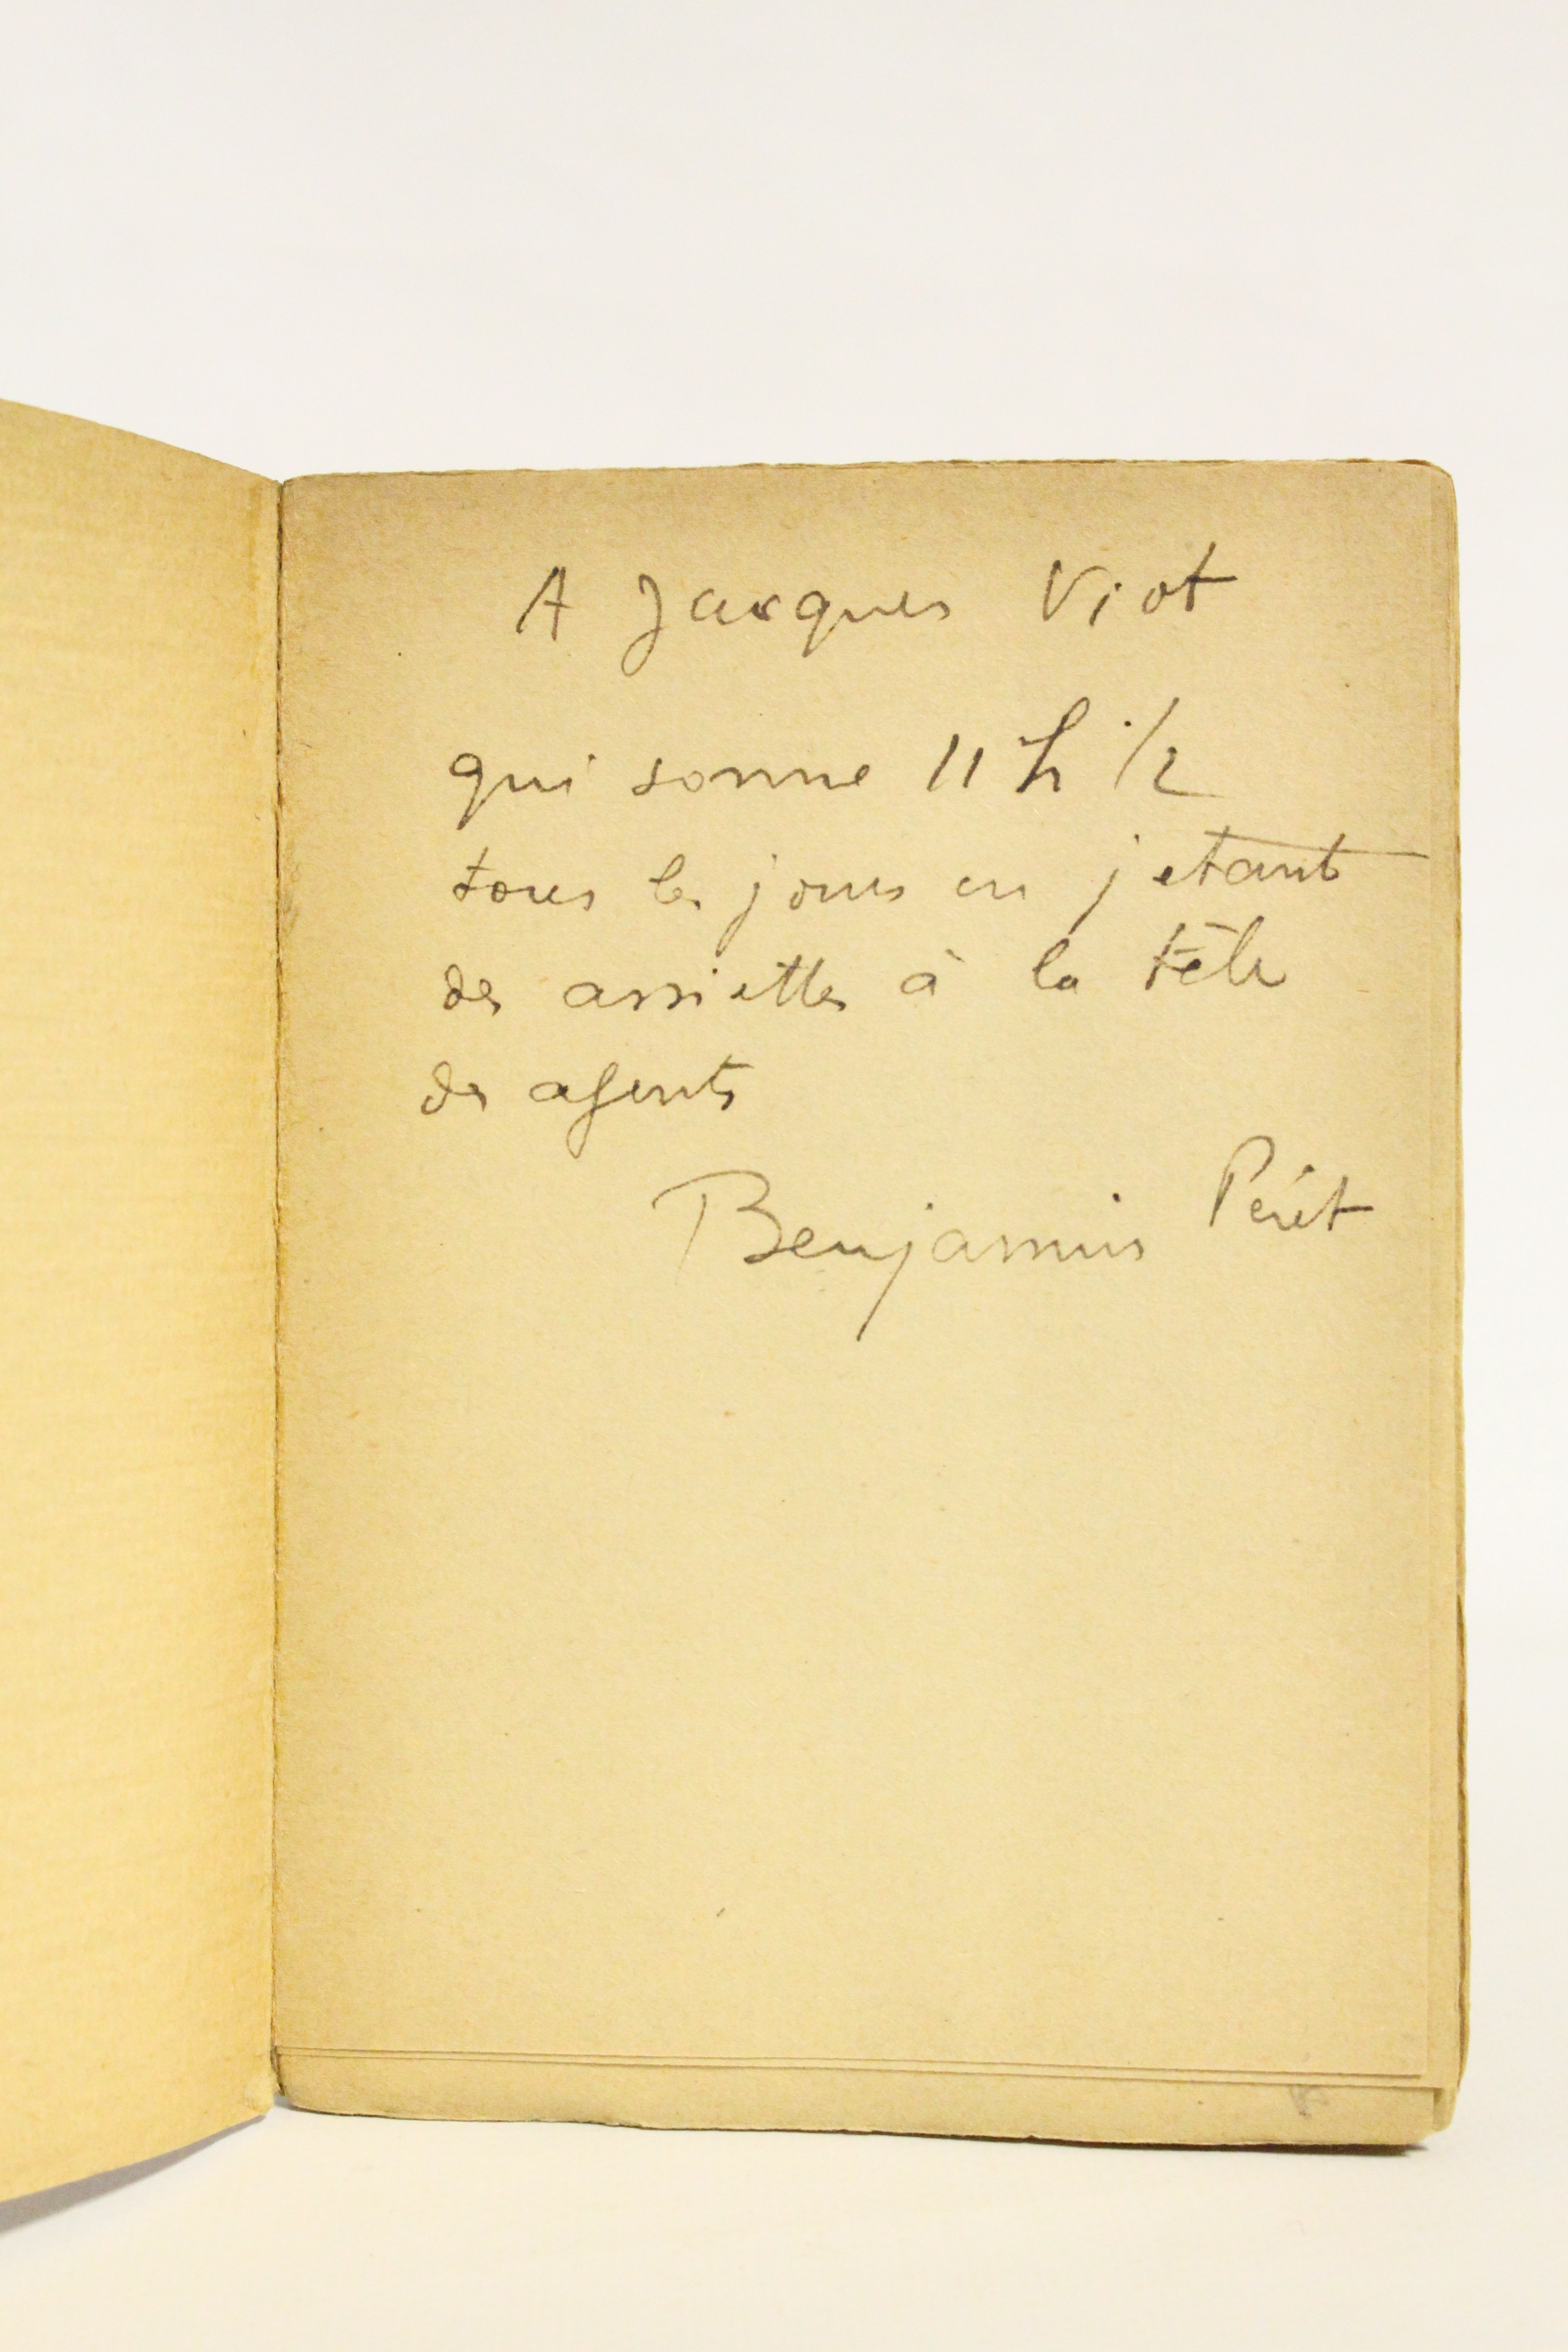 A Jacques Viot
qui sonne 11 h 1/2
tous les jours en jetant
des assiettes à la tête
des agents
Benjamin Péret